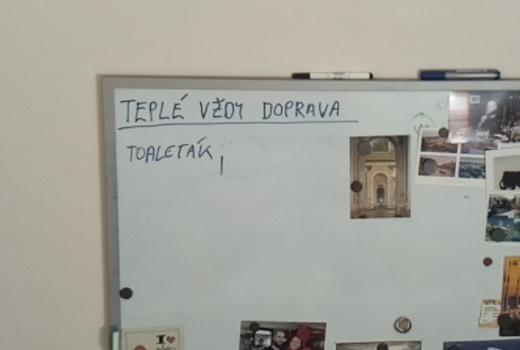 TEPLÉ VŽDY DOPRAVA
TOALETÁK
I